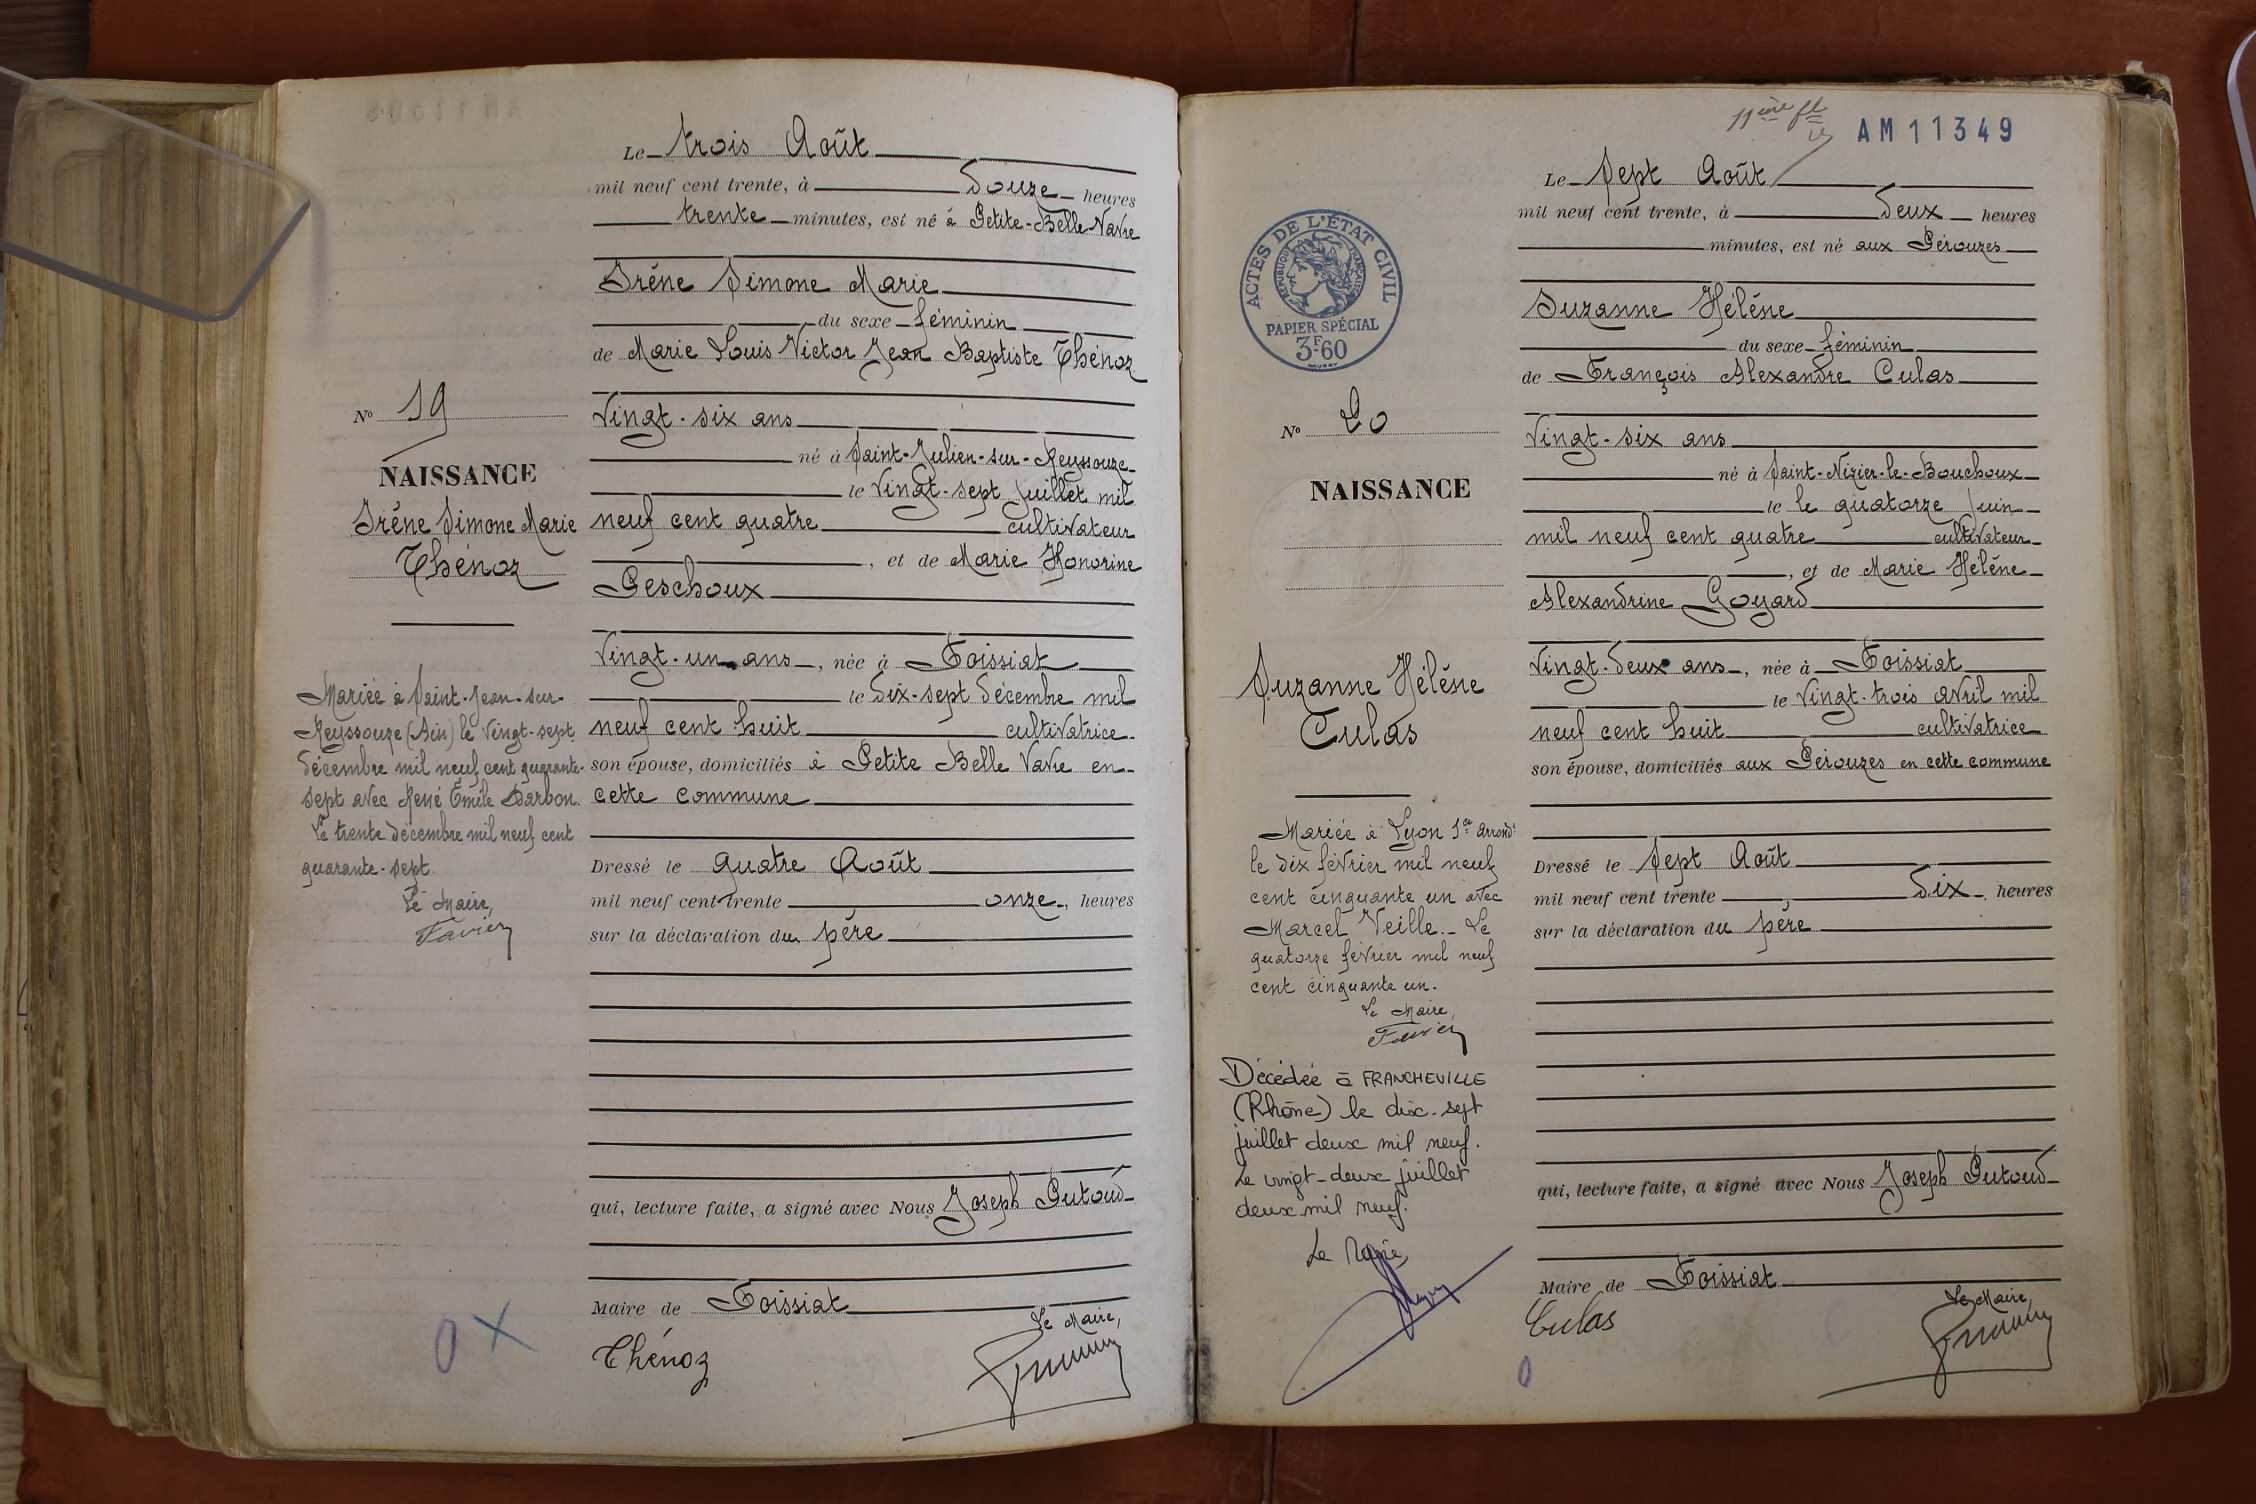 Le trois Août
mil neuf cent trente, à douze heures
trente minutes, est né à Petite-Belle-Navre
Irène Simone Marie
du sexe féminin
de Marie Louis Victor Jean Baptiste Thénoz
Vingt-six ans
né à Saint-Julien-sur-Reyssouze
le vingt-sept juillet mil
neuf cent quatre cultivateur
, et de Marie Honorine
Peschoux
Vingt-un ans, née à Foissiat
le dix-sept décembre mil
neuf cent huit cultivatrice
son épouse, domiciliés à Petite Belle en
cette commune
Dressé le quatre Août
mil neuf cent trente onze, heures
sur la déclaration du père
qui, lecture faite, a signé avec Nous Joseph Putoud
Maire de Foissiat
Le Maire,
Thénoz
N° 19
NAISSANCE
Irène Simone Marie
Thénoz
Mariée à Saint-Jean-sur-
Reyssouze (Ain) le vingt-sept
décembre mil neuf cent quarante-
sept avec René Emile Darbon.
Le trente décembre mil neuf cent
quarante-sept.
Le Maire,
Favier
O X
11ème fl
AM11349
Le Sept Août
mil neuf cent trente, à deux heures
minutes, est né aux Pérouzes
Suzanne Hélène
du sexe féminin
de François Alexandre Culas
Vingt-six ans
né à Saint-Nizier-le-Bouchoux
le le quatorze juin
mil neuf cent quatre cultivateur
, et de Marie Hélène
Alexandrine Goyard
Vingt-deux ans, née à Foissiat
le vingt-trois avril mil
neuf cent huit cultivatrice
son épouse, domiciliés aux Pérouzes en cette commune
Dressé le Sept Août
mil neuf cent trente dix, heures
sur la déclaration du père
qui, lecture faite, a signé avec Nous Joseph Putoud
Maire de Foissiat
Le Maire,
Culas
O
ACTES DE L'ÉTAT CIVIL
RÉPUBLIQUE FRANÇAISE
PAPIER SPÉCIAL
3F60
N° 20
NAISSANCE
Suzanne Hélène
Culas
Mariée à Lyon 1er arrondt
le dix février mil neuf
cent cinquante un avec
Marcel Veille. Le
quatorze février mil neuf
cent cinquante un.
Le Maire,
Favier
Décédée à FRANCHEVILLE
(Rhône) le dix-sept
juillet deux mil neuf.
Le vingt-deux juillet
deux mil neuf.
Le Maire,